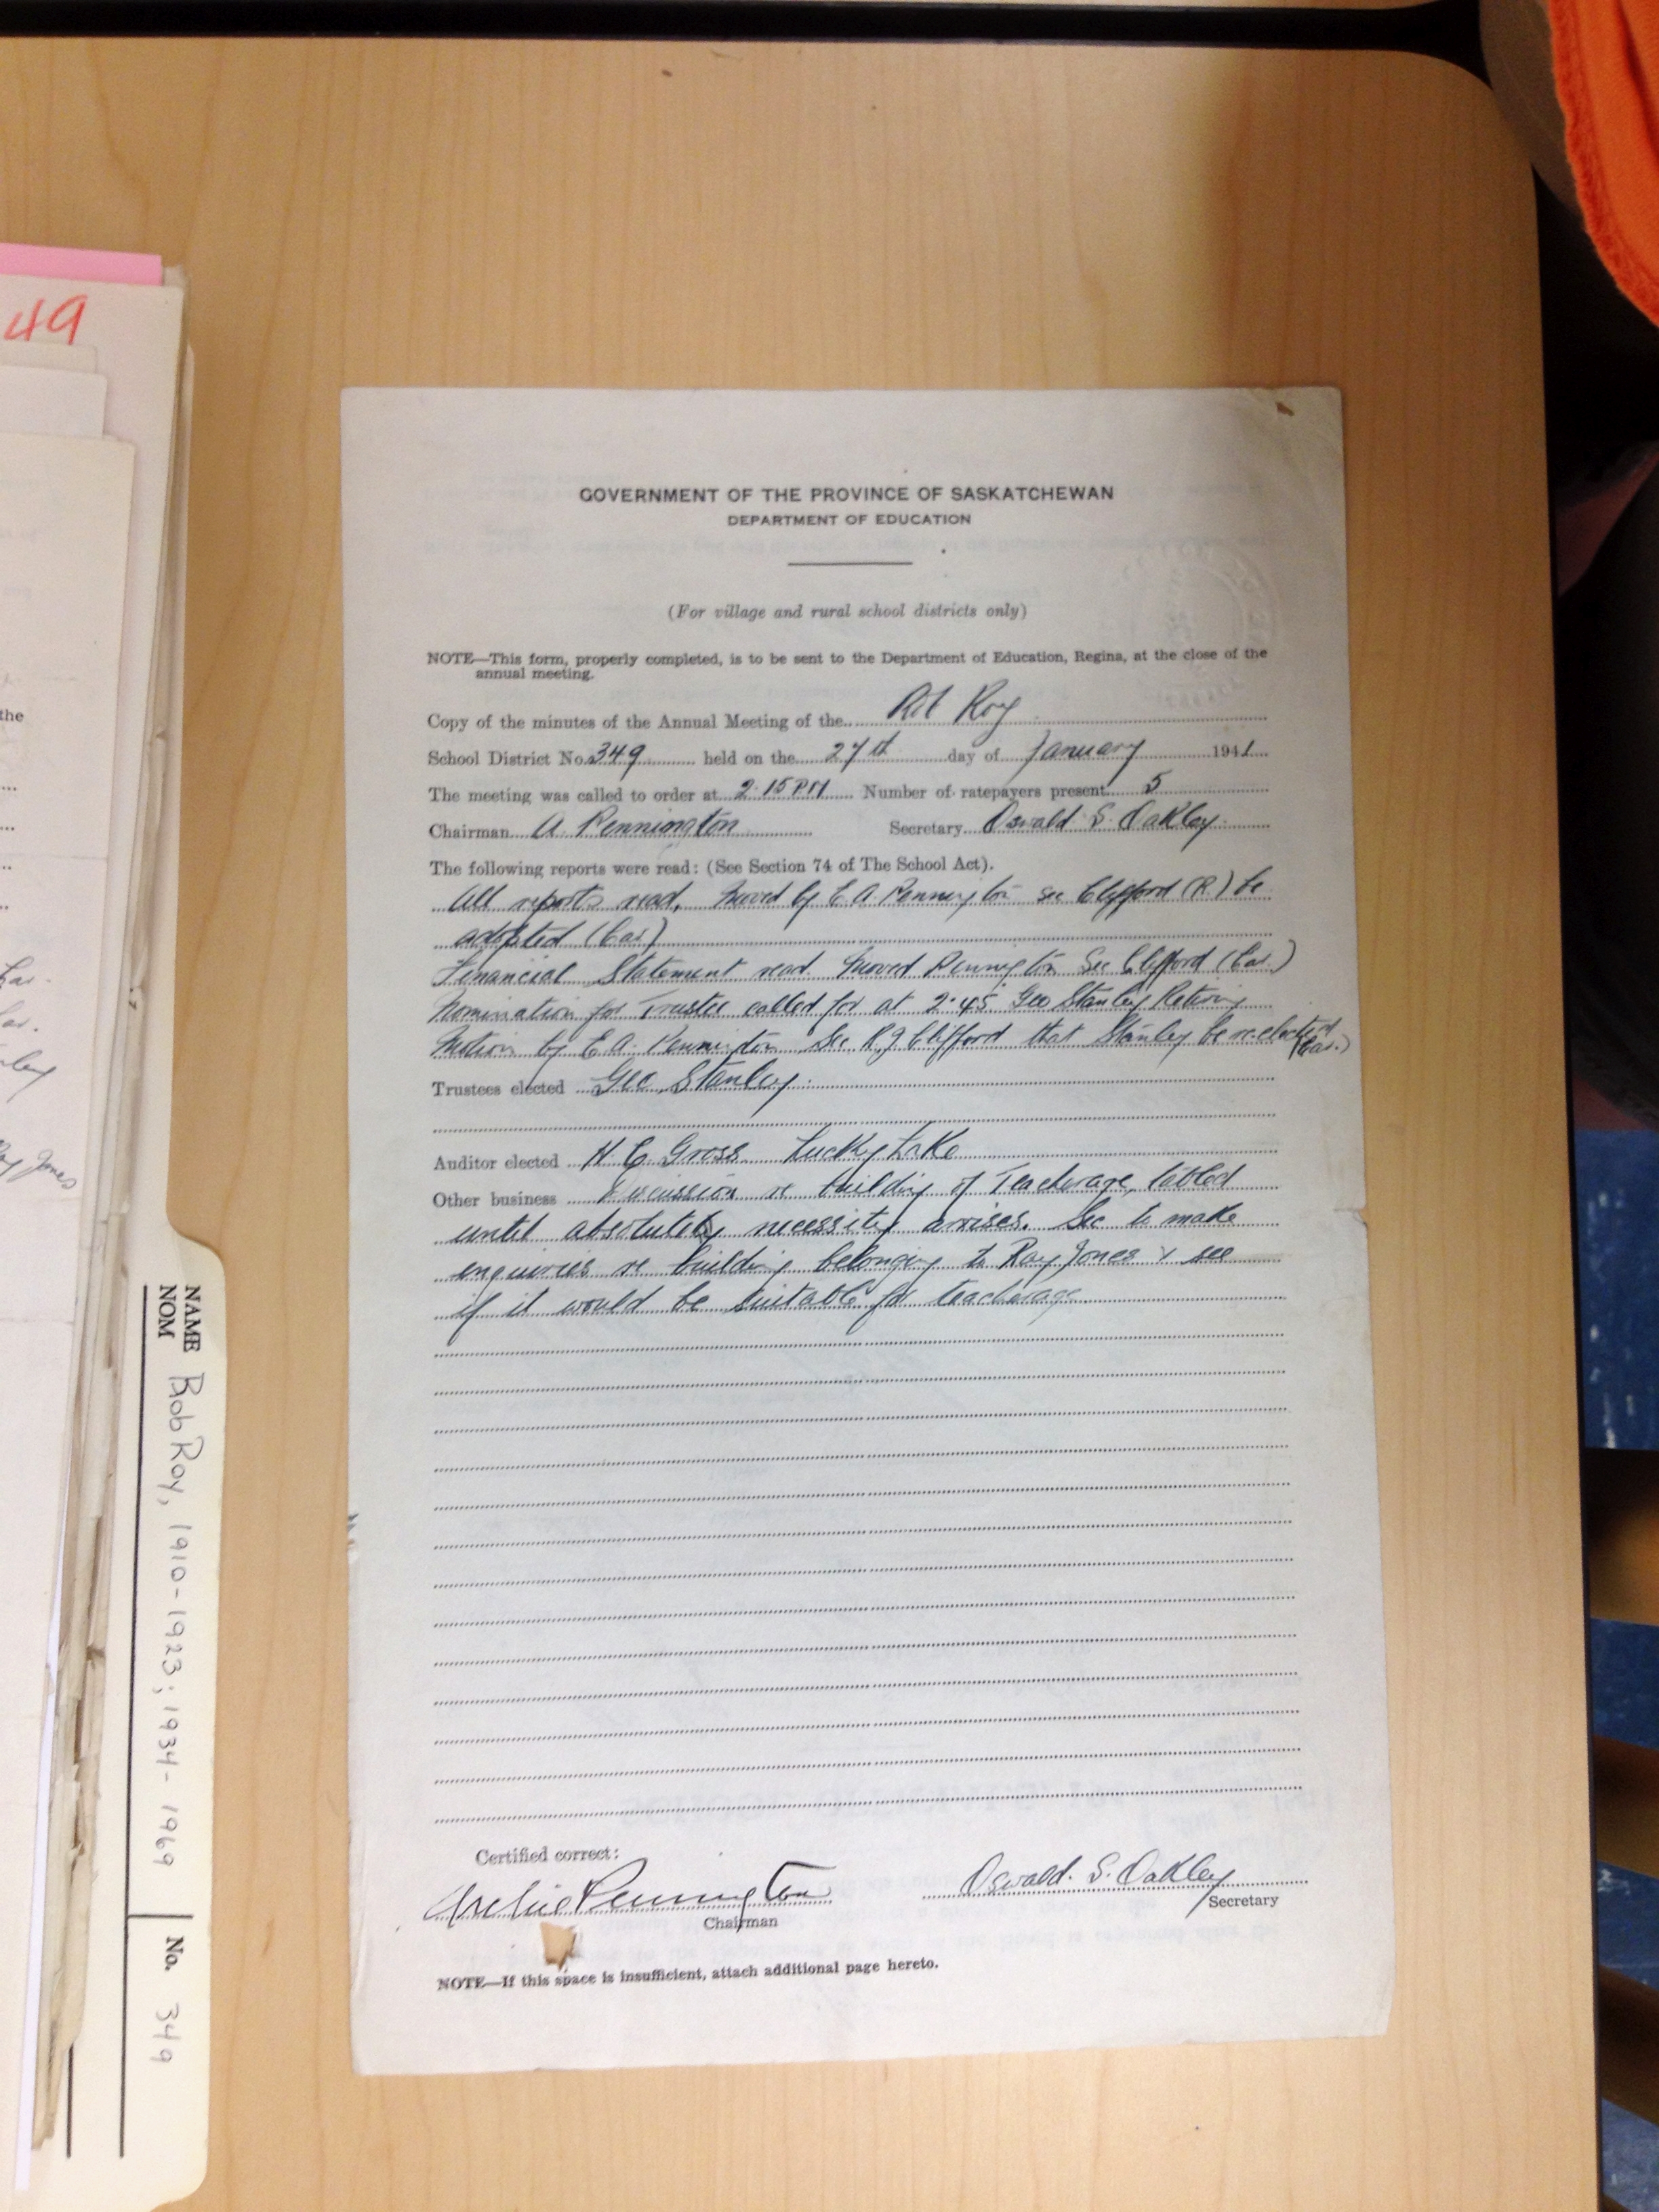 49
the
Jones
NAME
NOM
Bob Roy, 1910-1923; 1934-1969
No. 349
GOVERNMENT OF THE PROVINCE OF SASKATCHEWAN
DEPARTMENT OF EDUCATION
(For village and rural school districts only)
NOTE—This form, properly completed, is to be sent to the Department of Education, Regina, at the close of the
annual meeting.
Copy of the minutes of the Annual Meeting of the Rob Roy
School District No. 349 held on the 27th day of January 1941
The meeting was called to order at 2.15 PM Number of ratepayers present 5
Chairman A. Pennington Secretary Oswald S. Oakley
The following reports were read: (See Section 74 of The School Act).
All reports read, moved by E A Pennington sec Clifford (R.) be
adopted (Car.)
Financial Statement read moved Pennington Sec Clifford (Car.)
Nomination for Trustee called for at 2.45 Geo Stanley Retiring
Motion by E A. Pennington Sec R J Clifford that Stanley be re-elected (Car.)
Trustees elected Geo Stanley.
Auditor elected H. C. Gross Lucky Lake
Other business Discussion re building of Teacherage, tabled
until absolutely necessity arrises. Sec to make
enquiries re building belonging to Ray Jones & see
if it would be suitable for teacherage
Certified correct:
Archie Pennington
Chairman
Oswald. S. Oakley
Secretary
NOTE—If this space is insufficient, attach additional page hereto.